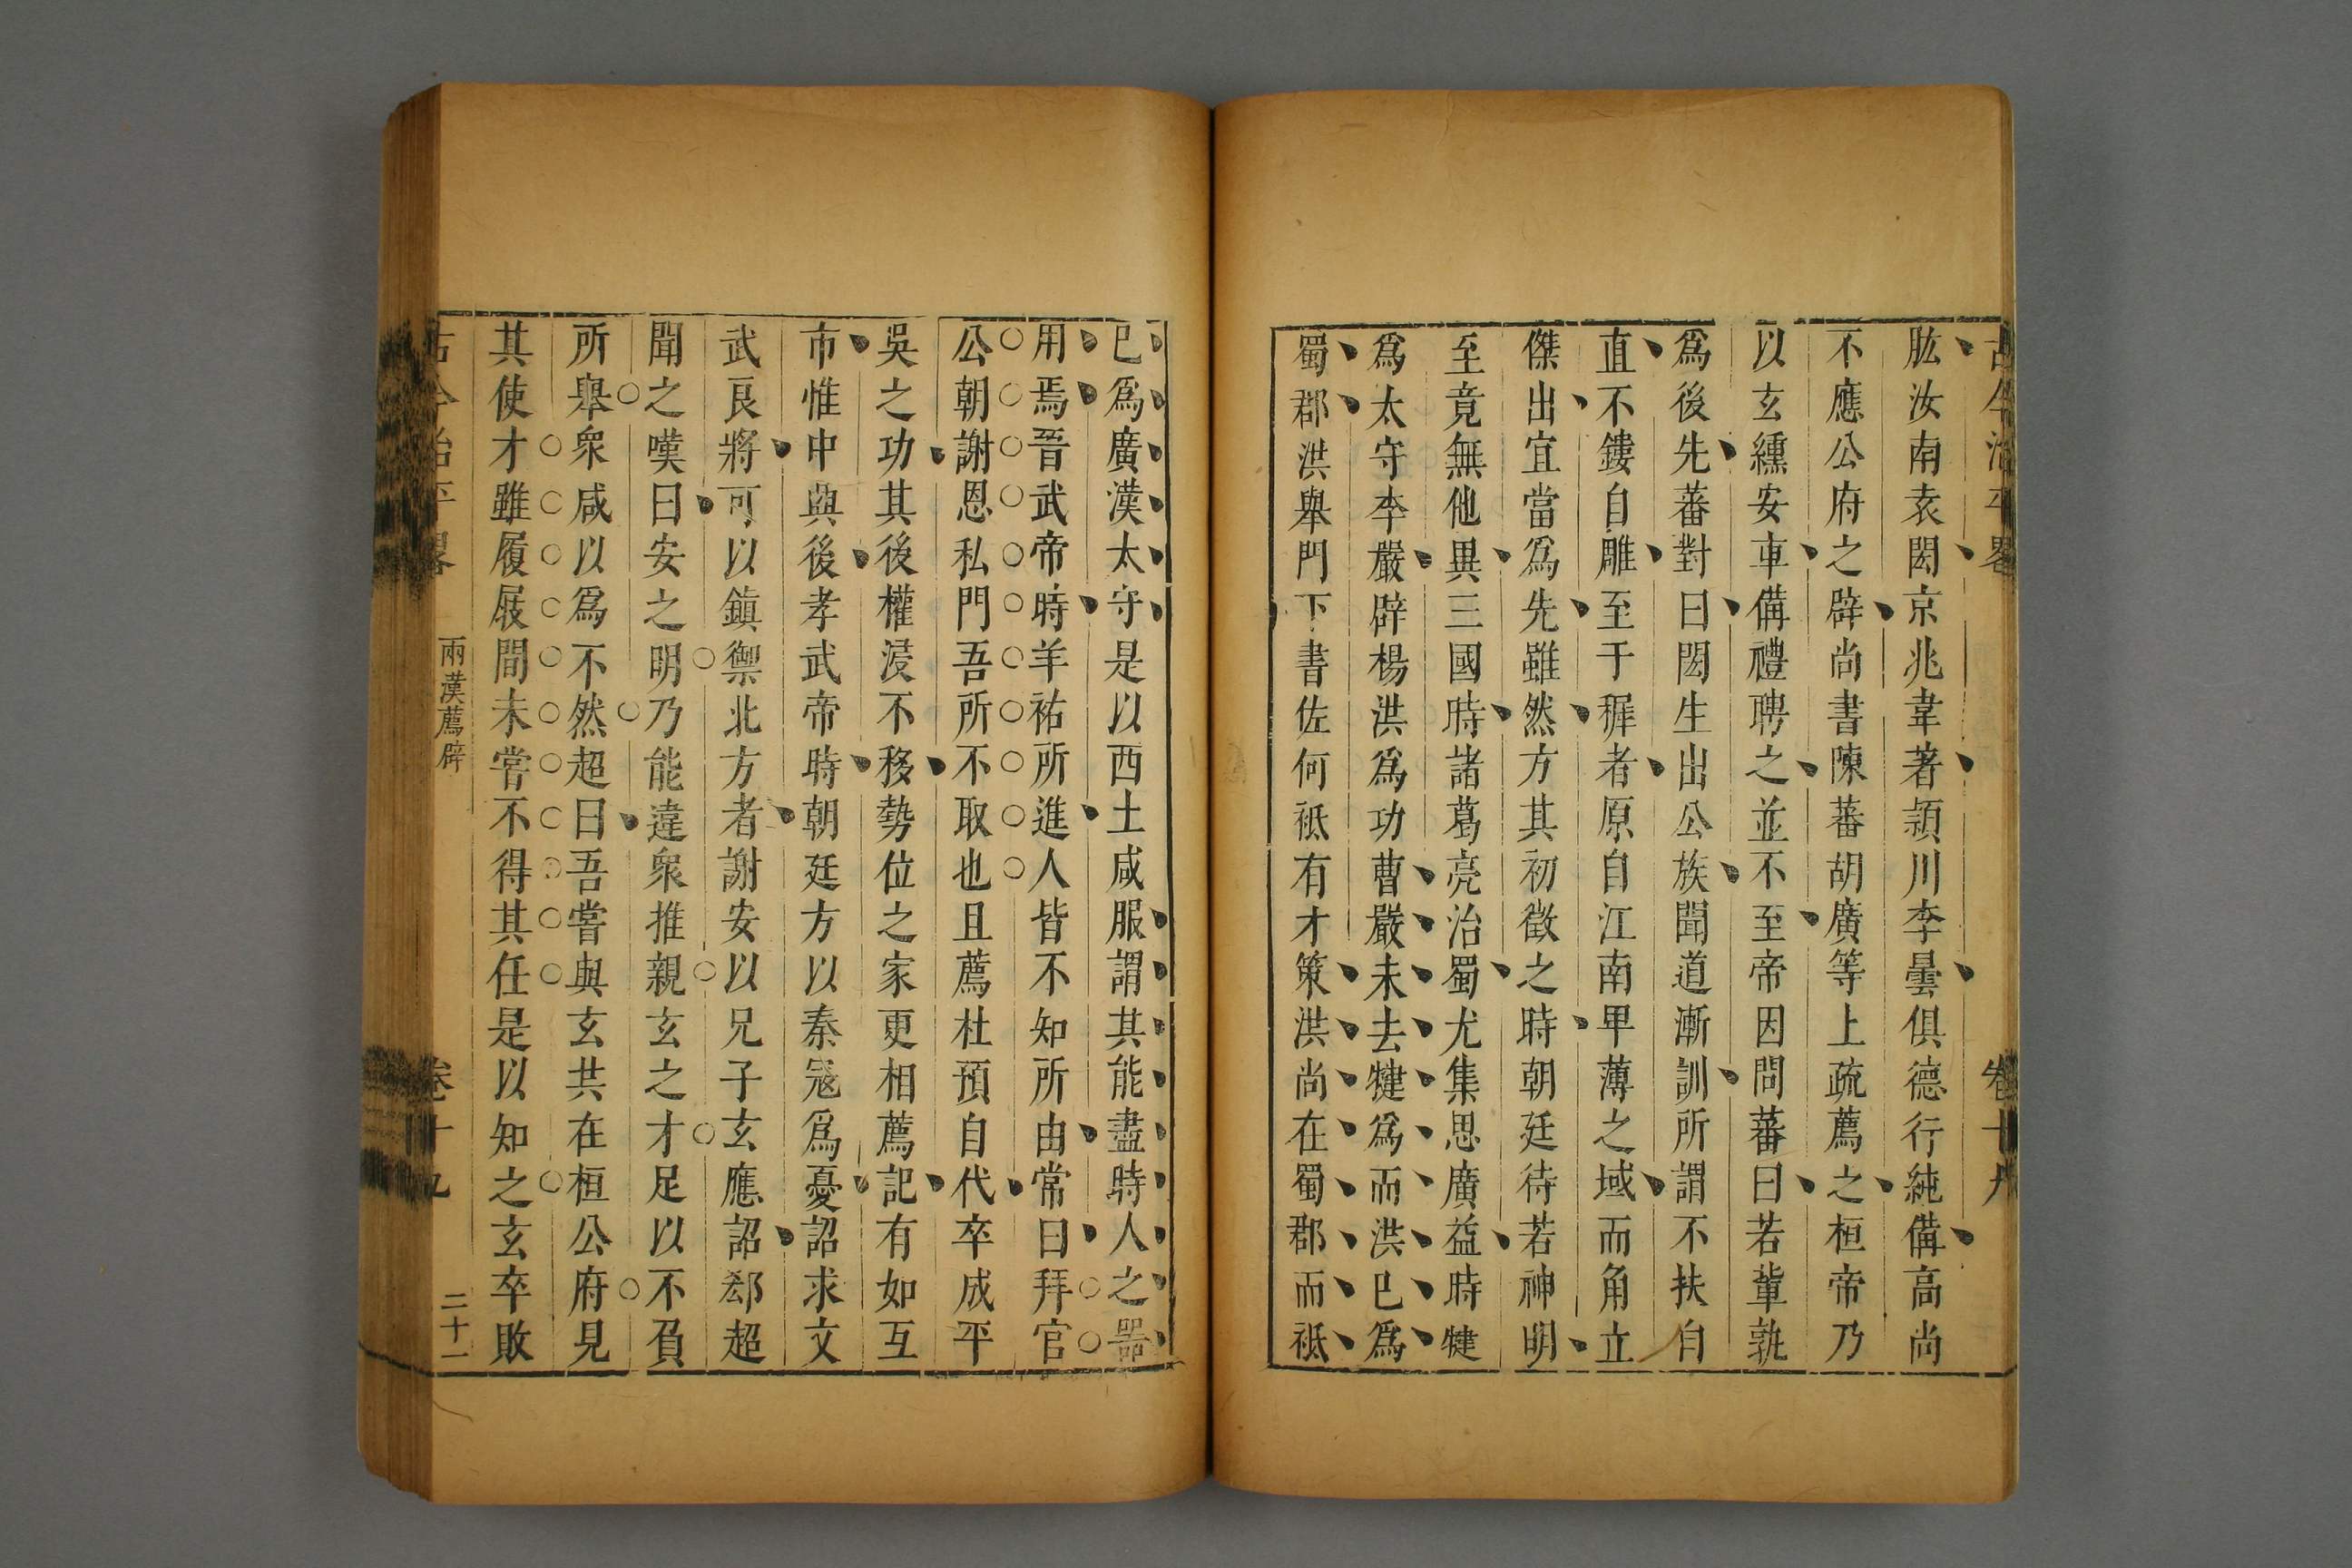 古今治平畧 卷十九
肱汝南袁閎京兆韋著潁川李曇俱德行純備高尚
不應公府之辟尚書陳蕃胡廣等上疏薦之桓帝乃
以玄纁安車備禮聘之並不至帝因問蕃曰若軰孰
爲後先蕃對曰閎生出公族聞道漸訓所謂不扶自
直不鏤自雕至于穉者原自江南𤰞薄之域而角立
傑出宜當爲先雖然方其初徵之時朝廷待若神明
至竟無他異三國時諸葛亮治蜀尤集思廣益時犍
爲太守李嚴辟楊洪爲功曹嚴未去犍爲而洪已爲
蜀郡洪舉門下書佐何祗有才策洪尚在蜀郡而祗
已爲廣漢太守是以西土咸服謂其能盡時人之噐
用焉晉武帝時羊祐所進人皆不知所由常曰拜官
公朝謝恩私門吾所不取也且薦杜預自代卒成平
吳之功其後權浸不移勢位之家更相薦記有如互
市惟中興後孝武帝時朝廷方以秦寇爲憂詔求文
武良將可以鎮禦北方者謝安以兄子玄應詔郄超
聞之嘆曰安之明乃能違衆推親玄之才足以不負
所舉衆咸以爲不然超曰吾嘗與玄共在桓公府見
其使才雖履屐間未嘗不得其任是以知之玄卒敗
古今治平畧 兩漢薦辟 卷十九 二十一